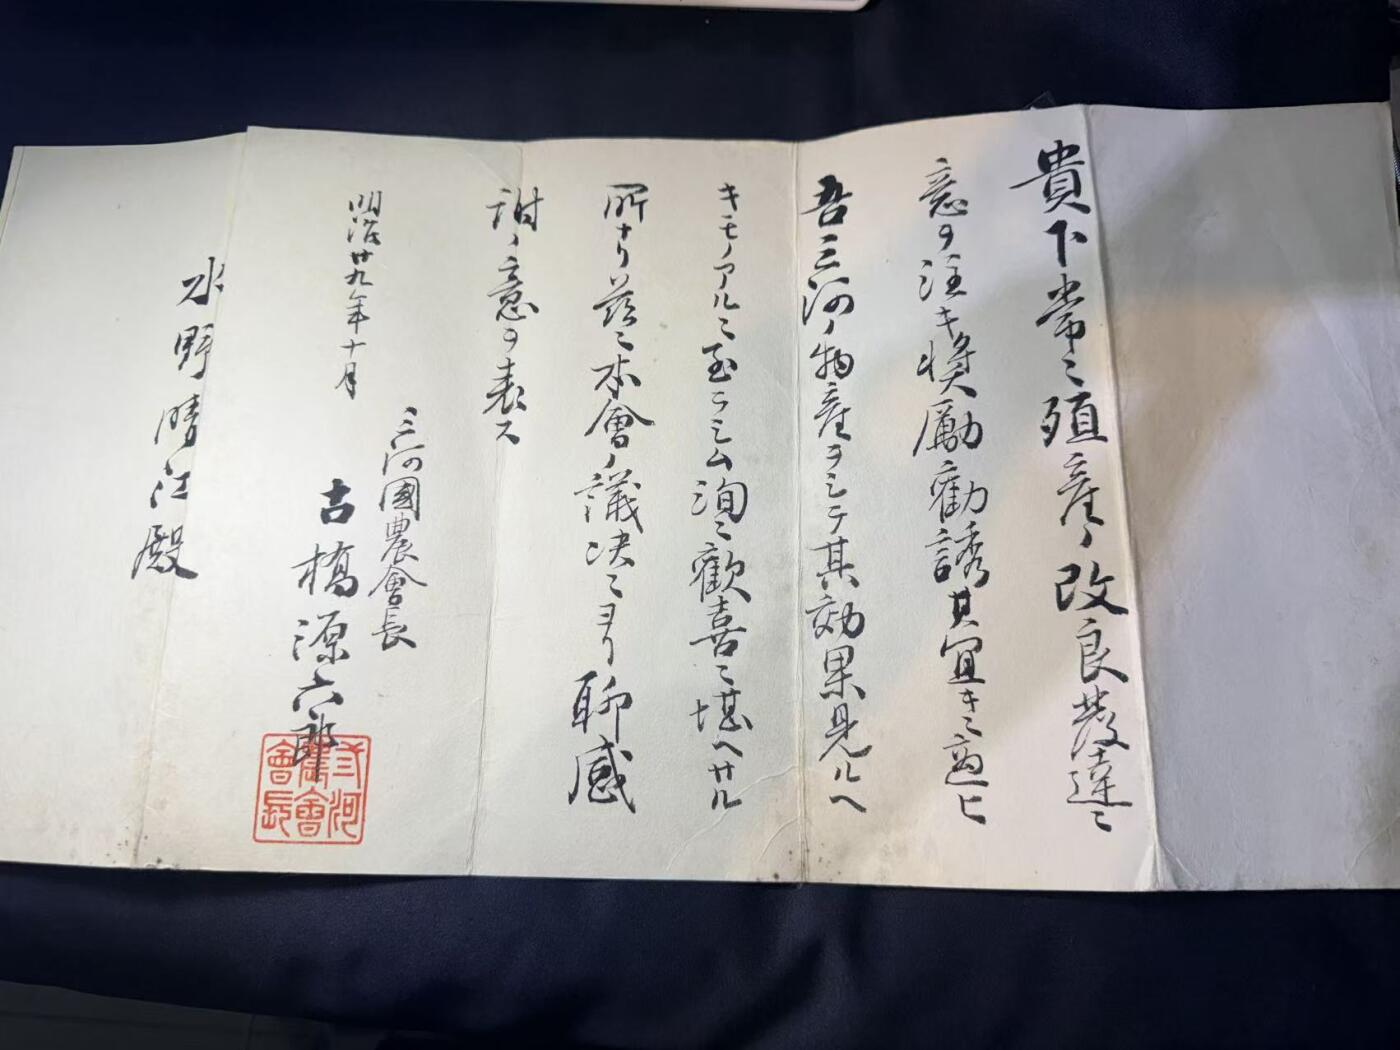 貴下常ニ殖産ノ改良發達ニ
意ヲ注キ奬勵勸誘其宜キニ適ヒ
吾三河ノ物産ヲシテ其効果見ルヘ
キモノアルニ至ラシム洵ニ歡喜ニ堪ヘサル
所ナリ茲ニ本會ノ議决ニヨリ聊感
謝ノ意ヲ表ス
明治廿九年十月
三河國農會長
古橋源六郎
水野晴江殿
三河
農會
會長